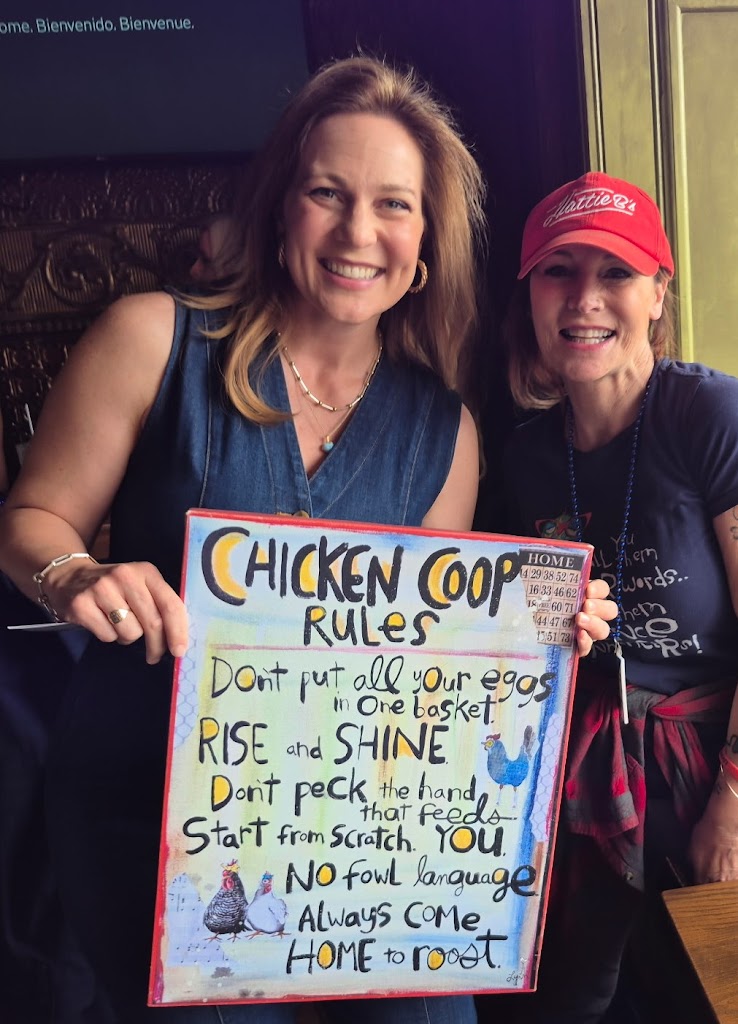 ome. Bienvenido. Bienvenue.
Hattie B's
CHICKEN COOP
RULES
HOME
14 29 38 52 74
16 33 46 62
60 71
44 47 67
51 73
Don't put all your eggs
in one basket.
RISE and SHINE.
Don't peck the hand
that feeds
Start from scratch. YOU.
NO fowl language
Always come
HOME to roost.
you
them
words..
them